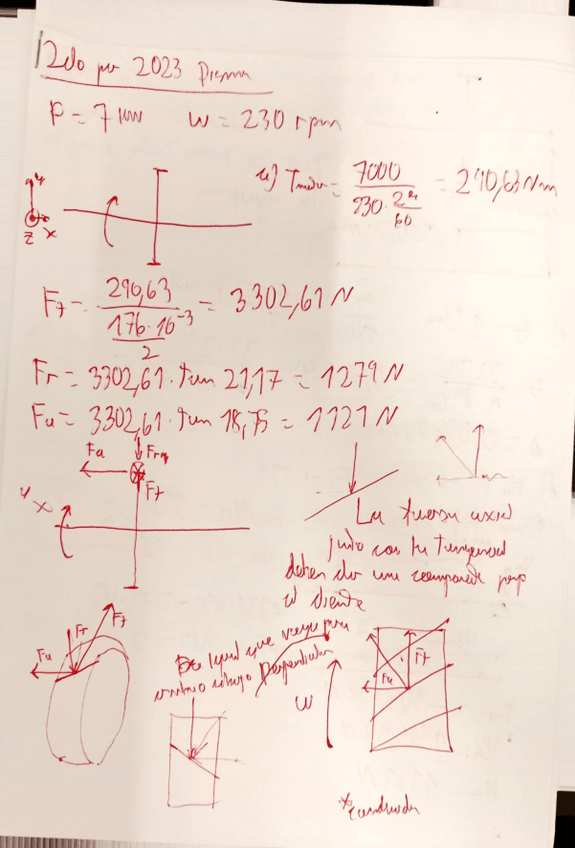 2do par 2023 Diseño
P = 7 kW   w = 230 rpm
a) Tmedio = 7000 / (230 · 2π/60) = 290,63 Nm
y
z x
Ft = 290,63 / (176·10⁻³ / 2) = 3302,61 N
Fr = 3302,61 · tan 21,17 = 1279 N
Fa = 3302,61 · tan 18,75 = 1121 N
Fa Fr
Ft
y x
La fuerza axial
junto con la tangencial
deben dar una componente perp
al diente
Fa Fr Ft
De igual que vaya para
abajo Perpendicular
w
Fa Ft
*conductor